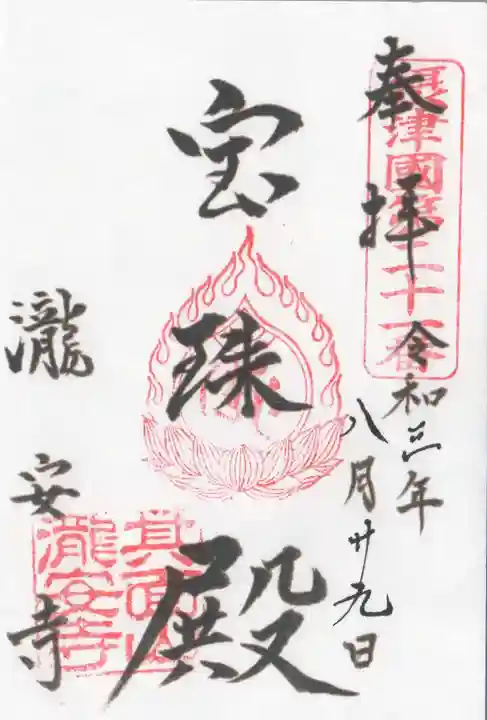 奉拝
攝津國第二十一番
令和三年
八月廿九日
宝珠殿
瀧安寺
箕面山
瀧安寺